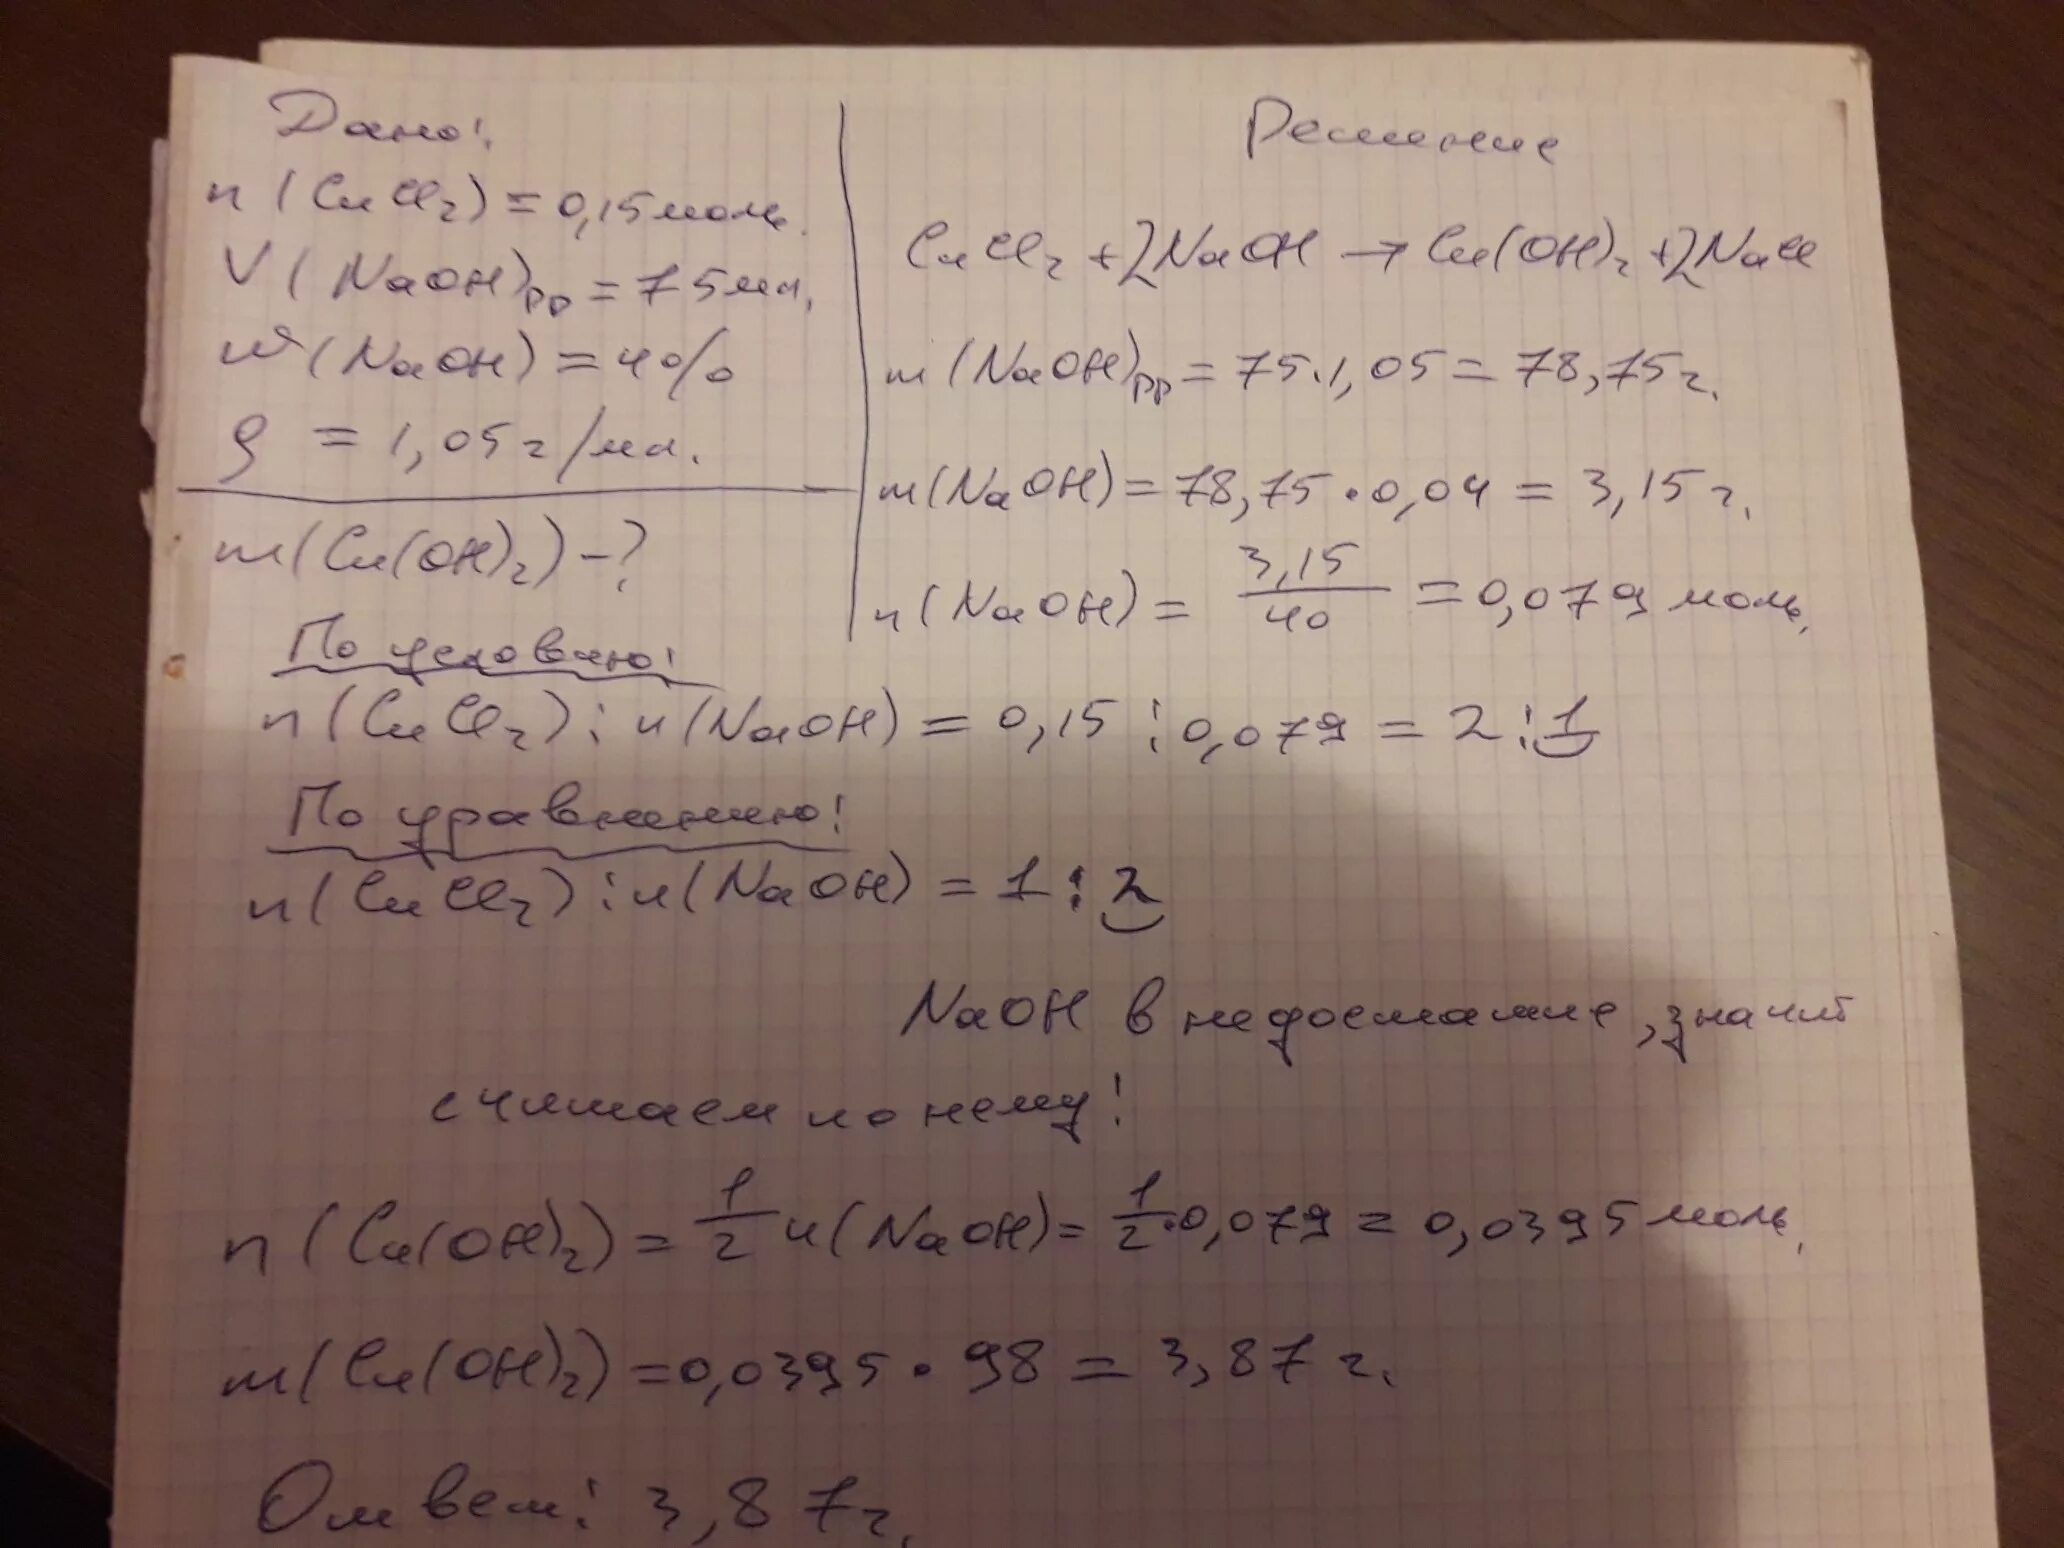 Дано:
n(CuCl₂) = 0,15 моль.
V(NaOH)рр = 75 мл.
w(NaOH) = 4%
ρ = 1,05 г/мл.
m(Cu(OH)₂) – ?
Решение
CuCl₂ + 2NaOH → Cu(OH)₂ + 2NaCl
m(NaOH)рр = 75·1,05 = 78,75 г.
m(NaOH) = 78,75·0,04 = 3,15 г.
n(NaOH) = 3,15/40 = 0,079 моль.
По условию:
n(CuCl₂) : n(NaOH) = 0,15 : 0,079 = 2 : 1
По уравнению:
n(CuCl₂) : n(NaOH) = 1 : 2
NaOH в недостатке, значит
считаем по нему!
n(Cu(OH)₂) = 1/2 n(NaOH) = 1/2·0,079 = 0,0395 моль.
m(Cu(OH)₂) = 0,0395·98 = 3,87 г.
Ответ: 3,87 г.